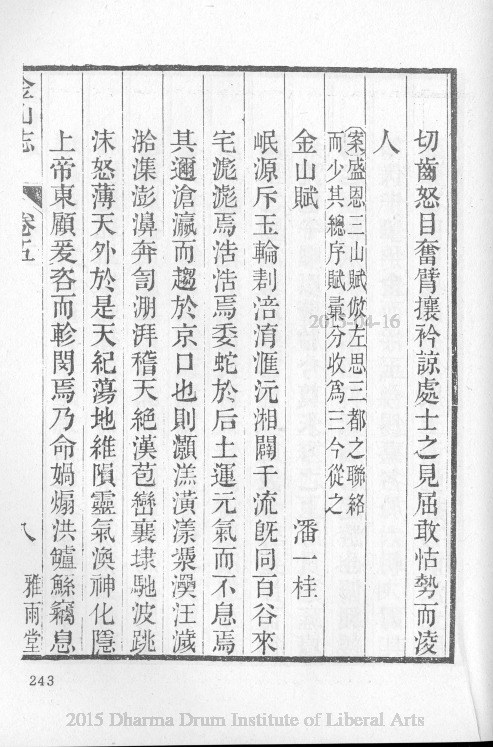 切齒怒目奮臂攘衿諒處士之見屈敢怙勢而淩
人
案盛恩三山賦倣左思三都之聯絡
而少其總序賦㝡分收爲三今從之
金山賦 潘一桂
岷源斥玉輪剨涪淯滙沅湘闢千流旣同百谷來
宅滮滮焉浩浩焉委蛇於后土運元氣而不息焉
其邇滄瀛而趨於京口也則灝溔潢漾㵘灪汪濊
㴰潗澎濞奔訇淜湃稽天絕漢苞巒襄埭馳波跳
沫怒薄天外於是天紀蕩地維隕靈氣渙神化隱
上帝東顧爰咨而軫閔焉乃命媧煽洪鑪鯀竊息
金山志 卷五 八 雅雨堂
243
2015-04-16
2015 Dharma Drum Institute of Liberal Arts